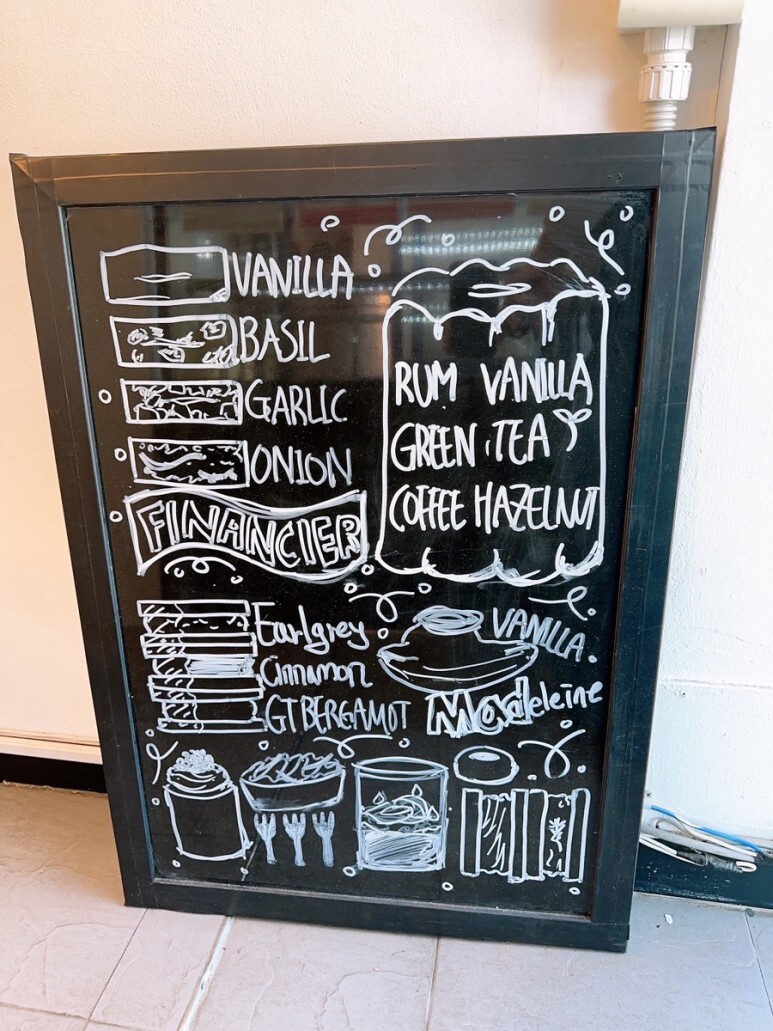 VANILLA
BASIL
GARLIC
ONION
FINANCIER
RUM VANILLA
GREEN TEA
COFFEE HAZELNUT
Earlgrey
Cinnamon
GT BERGAMOT
VANILLA
Madeleine